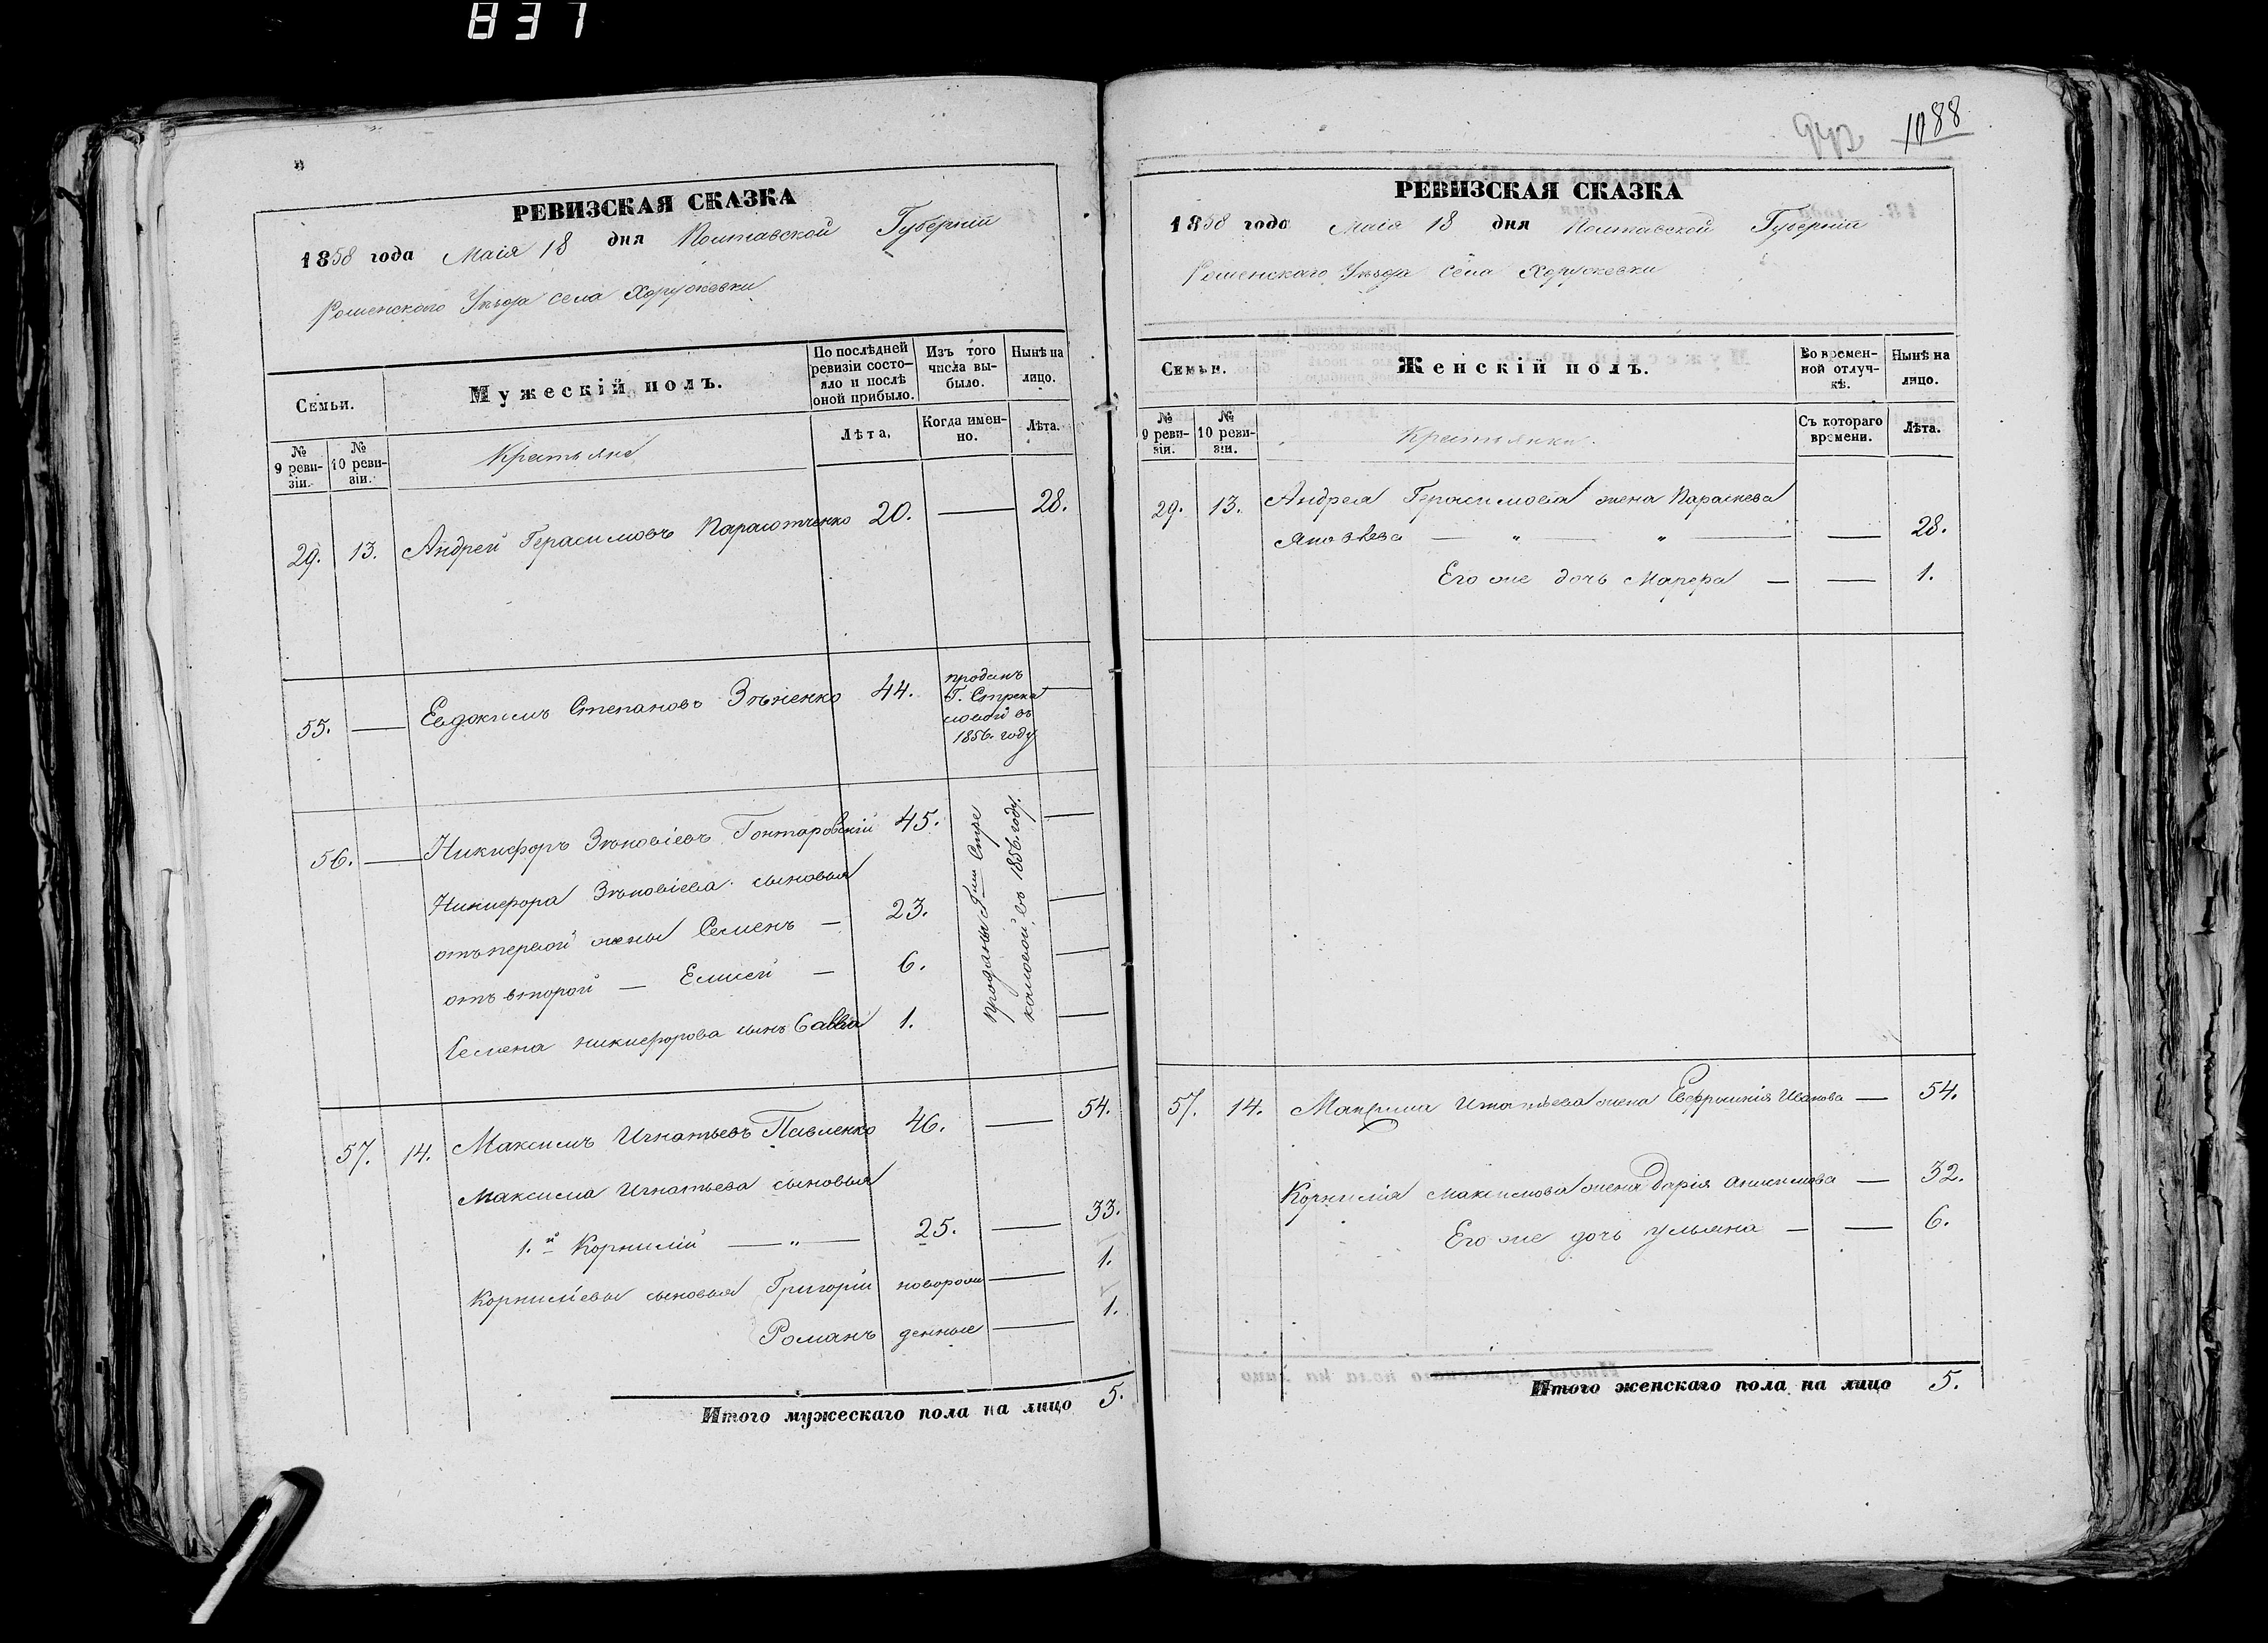 837
РЕВИЗСКАЯ СКАЗКА
1858 года Маія 18 дня Полтавской Губерніи
Роменского Уѣзда села Хоружевки
Семьи.
Мужескій полъ.
По послѣдней ревизіи состояло и послѣ оной прибыло.
Изъ того числа выбыло.
Нынѣ на лицо.
№ 9 ревизіи.
№ 10 ревизіи.
Крестьяне
Лѣта.
Когда именно.
Лѣта.
29. 13. Андрей Герасимовъ Парасютченко 20. — 28.
55. — Евдокимъ Степановъ Зѣненко 44. —
проданъ
Г. Стрека
ловой въ
1856. году
56. — Никифоръ Зѣновіевъ Гонтаровскій 45. —
Никифора Зѣновіева сыновья
отъ первой жены Семенъ — 23. —
отъ второй — Елисей — 6. —
Семена Никифорова сынъ Савва 1. —
проданы Г-жи Стре
каловой въ 1856. году.
57. 14. Максимъ Игнатьевъ Павленко 46. — 54.
Максима Игнатьева сыновья
1.й Корнилій — „ — 25. — 33.
Корниліевы сыновья Григорій новорож — 1.
Романъ денные — 1.
Итого мужескаго пола на лицо 5.
942 1088
РЕВИЗСКАЯ СКАЗКА
1858 года Маія 18 дня Полтавской Губерніи
Роменскаго Уѣзда села Хоружевки
Семьи.
Женскій полъ.
Во временной отлучкѣ.
Нынѣ на лицо.
№ 9 ревизіи.
№ 10 ревизіи.
Крестьянки.
Съ котораго времени.
Лѣта.
29. 13. Андрея Герасимова жена Параскева
Яковлева — „ — „ — — 28.
Его же дочь Марфа — — 1.
57. 14. Максима Игнатьева жена Евфросинія Иванова — 54.
Корнилія Максимова жена Дарія Анисимова — 32.
Его же дочь Ульяна — — 6.
Итого женскаго пола на лицо 5.